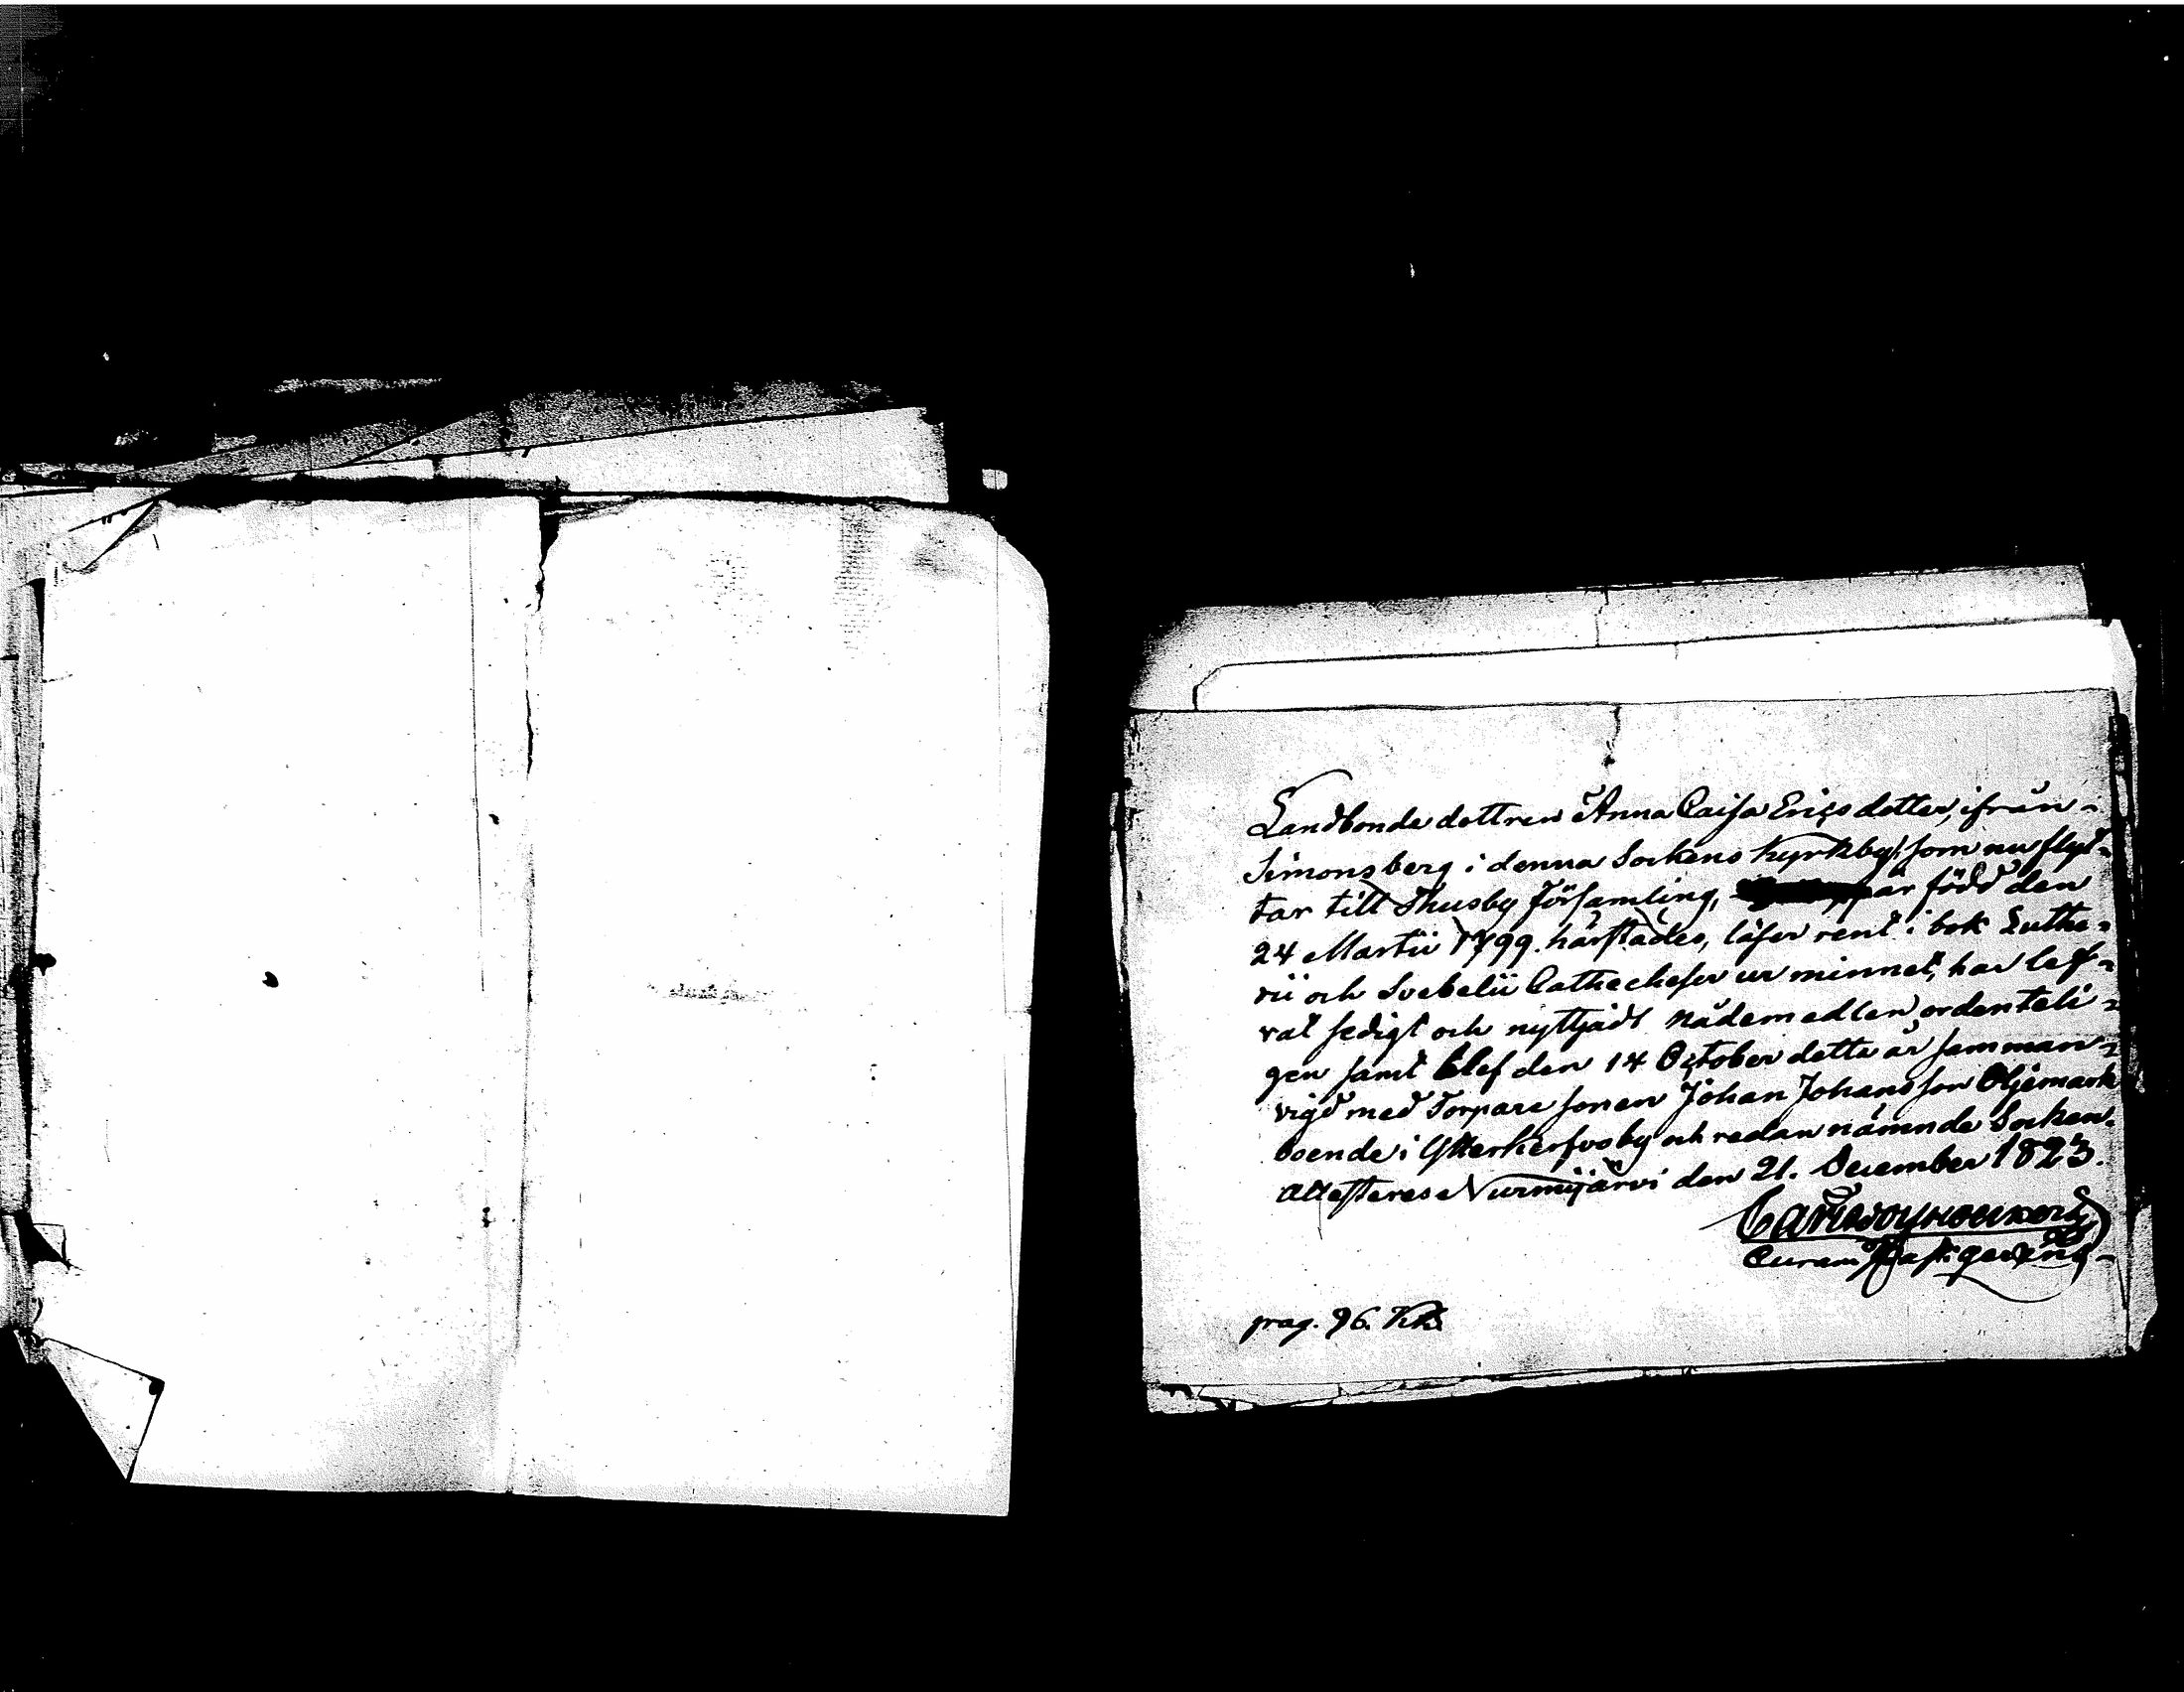 Landbonde dottren Anna Caisa Ericsdotter, ifrån
Simonsberg i denna Sockens Kyrkby, som nu flyt-
tar till Thusby Församling, är född den
24 Martii 1799. härstädes, läser rent i bok Luthe-
rii och Svebelii Cathecheser ur minnet, har lef-
vat sedigt och nyttjadt nådemedlen ordenteli-
gen samt blef den 14 October detta år samman-
vigd med Torpare sonen Johan Johansson Oljemark
boende i Ytterkerfvoby och redan nämnde Socken.
Attesteras Nurmijärvi den 21. December 1823.
Curam Past. gerens
pag. 96. Kb.